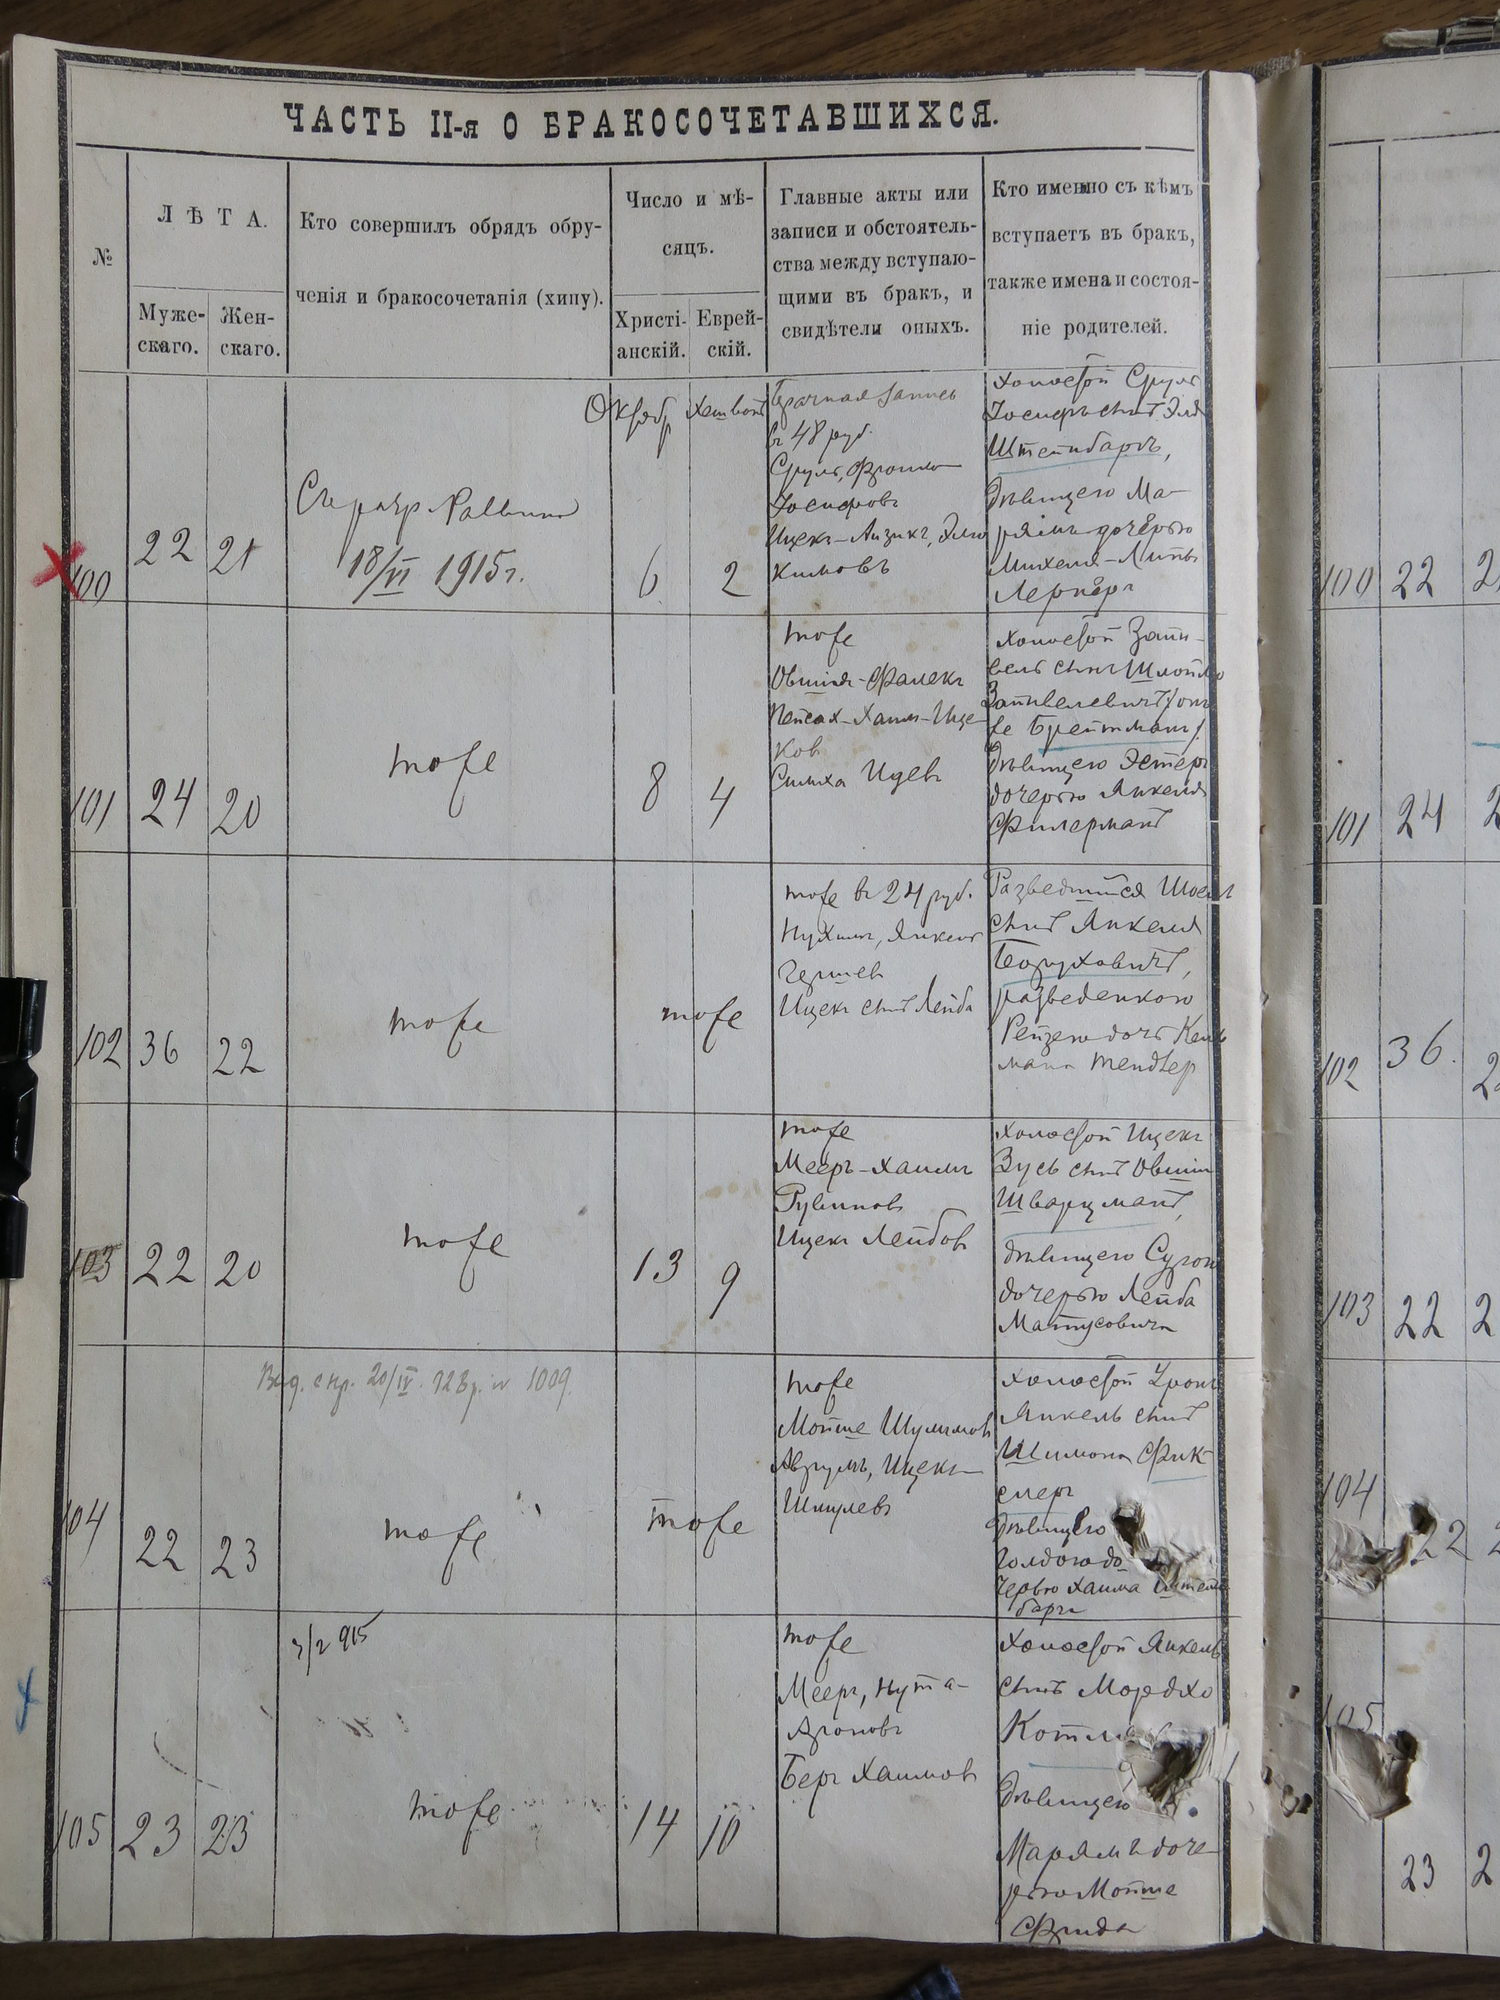 ЧАСТЬ II-я О БРАКОСОЧЕТАВШИХСЯ.
№
ЛѢТА.
Муже-
скаго.
Жен-
скаго.
Кто совершилъ обрядъ обру-
ченія и бракосочетанія (хипу).
Число и мѣ-
сяцъ.
Христі-
анскій.
Еврей-
скій.
Главные акты или
записи и обстоятель-
ства между вступаю-
щими въ бракъ, и
свидѣтели оныхъ.
Кто именно съ кѣмъ
вступаетъ въ бракъ,
также имена и состоя-
ніе родителей.
100
22
21
18/VI 1915г.
6
2
Брачная запись
въ 48 руб.
Сруль, Фроим
Іосифовъ
Ицекъ-Айзикъ,
Холостой Сруль
Іосифъ сынъ
Штейнбаргъ,
дѣвицею Ма-
рямъ дочерью
Михеля-Липы
Лернеръ
101
24
20
тоже
8
4
тоже
Овшія-Фалекъ
Пейсах-Хаим-Ице-
ков
Симха Идевъ
Холостой Зайн-
вель сынъ Шлоймо
Зайнвелевичъ/он
же Брейтманъ/
дѣвицею Эстеръ
дочерью Янкеля
Филерманъ
102
36
22
тоже
тоже
тоже въ 24 руб.
Нухимъ, Янкель
Гершев
Ицекъ сынъ Лейба
Разведшійся Шоел
сынъ Янкеля
Боруховичъ,
разведенною
Рейзею дочь Кель
мана Тендлер
103
22
20
тоже
13
9
тоже
Мееръ-Хаимъ
Рувинов
Ицекъ Лейбов
Холостой Ицекъ
Зусь сынъ Овшіи
Шварцманъ,
дѣвицею Сурою
дочерью Лейба
Матусовича
104
22
23
тоже
тоже
тоже
Мойше Шулимов
Аврумъ, Ицекъ
Шмулевъ
Холостой Уронъ
Янкель сынъ
Шимона Фик-
слеръ
дѣвицею
Голдою до
черью Хаима Штейн
баргъ
105
23
23
3/2 915
тоже
14
10
тоже
Меер, Нута-
Ароновъ
Беръ Хаимов
Холостой Янкель
сынъ Мордхо
дѣвицею
Марямъ доче-
рью Мойше
Фрида
100
22
101
24
102
36.
103
22
2
104
22
105
23
2